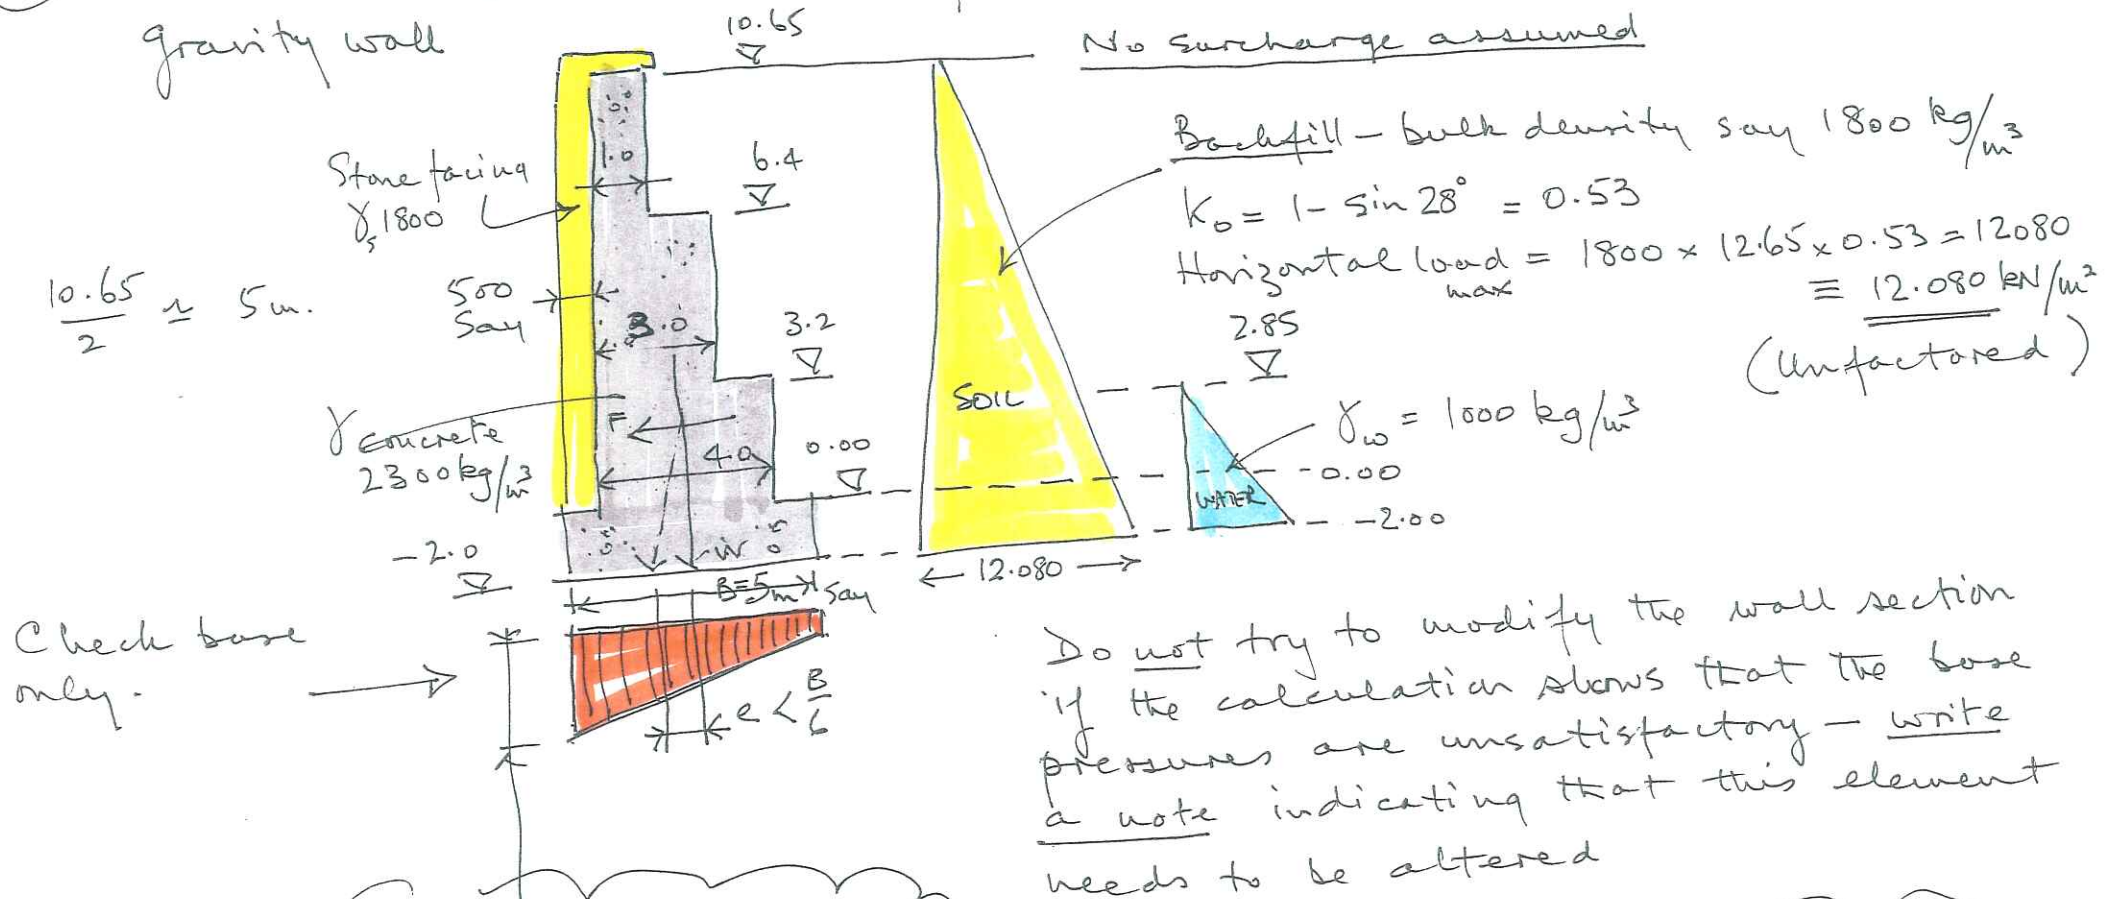 gravity wall
10.65
No surcharge assumed
Stone facing
γs 1800
1.0
6.4
Backfill – bulk density say 1800 kg/m³
K₀ = 1 – sin 28° = 0.53
Horizontal load max = 1800 × 12.65 × 0.53 = 12080
≡ 12.080 kN/m²
(Unfactored)
10.65/2 ≃ 5m.
500
Say
3.0
3.2
2.85
SOIL
γw = 1000 kg/m³
γconcrete
2300 kg/m³
F
4.0
0.00
-0.00
WATER
-2.00
-2.0
W
12.080
B=5m say
Check base
only.
e < B/6
Do not try to modify the wall section
if the calculation shows that the base
pressures are unsatisfactory – write
a note indicating that this element
needs to be altered